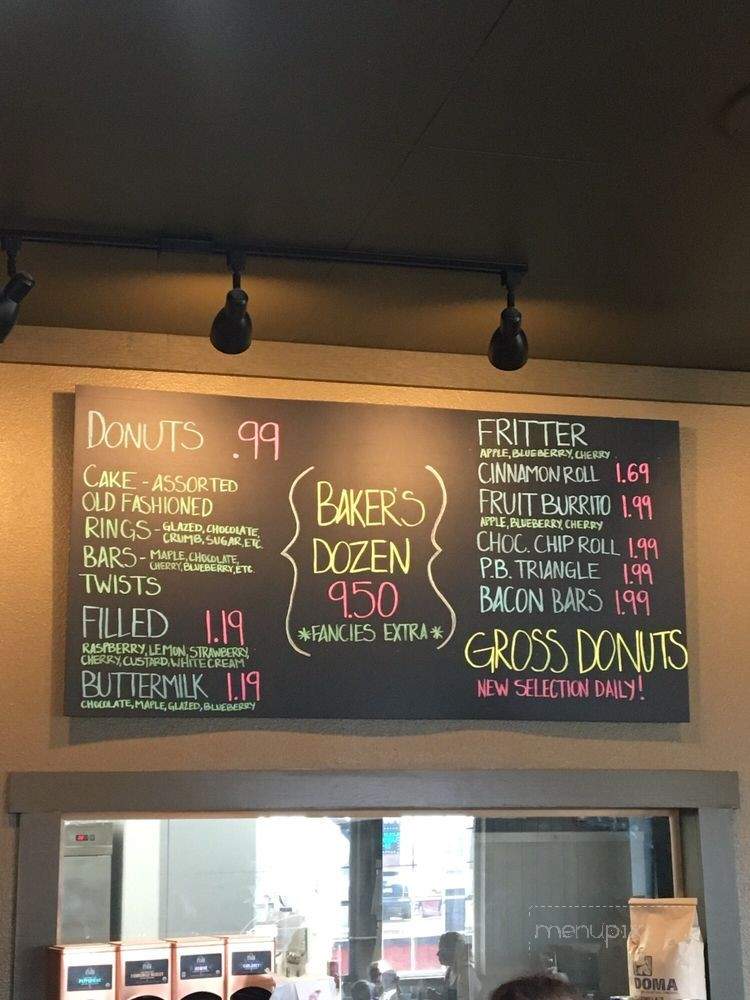 DONUTS .99
CAKE - ASSORTED
OLD FASHIONED
RINGS - GLAZED, CHOCOLATE,
CRUMB, SUGAR, ETC.
BARS - MAPLE, CHOCOLATE,
CHERRY, BLUEBERRY, ETC.
TWISTS
FILLED 1.19
RASPBERRY, LEMON, STRAWBERRY,
CHERRY, CUSTARD, WHITE CREAM
BUTTERMILK 1.19
CHOCOLATE, MAPLE, GLAZED, BLUEBERRY
BAKER'S
DOZEN
9.50
*FANCIES EXTRA*
FRITTER
APPLE, BLUEBERRY, CHERRY
CINNAMON ROLL 1.69
FRUIT BURRITO 1.99
APPLE, BLUEBERRY, CHERRY
CHOC. CHIP ROLL 1.99
P.B. TRIANGLE 1.99
BACON BARS 1.99
GROSS DONUTS
NEW SELECTION DAILY!
menupix
DOMA